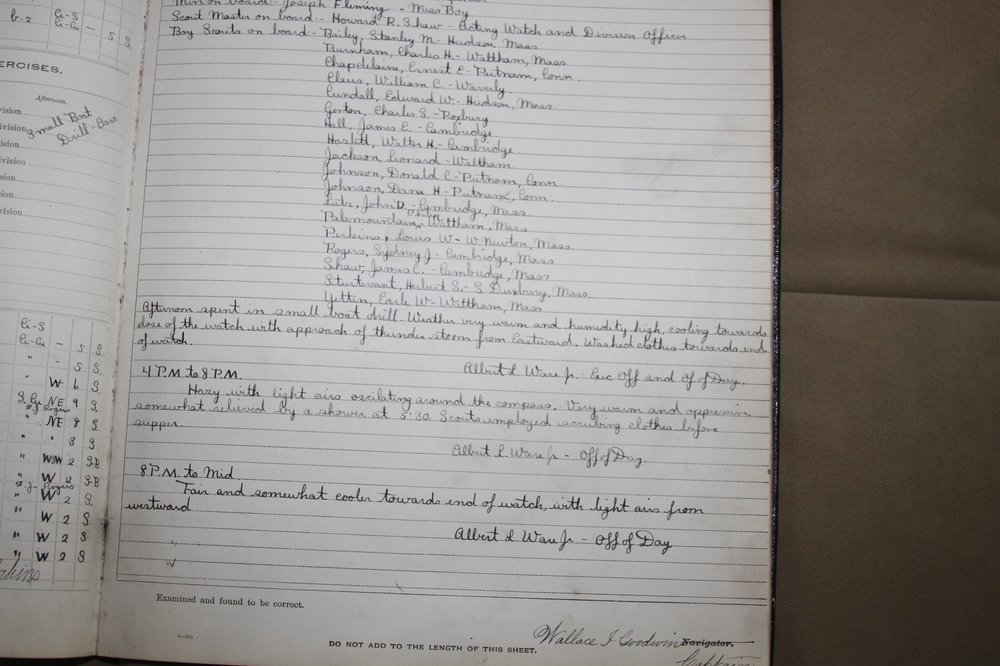 Men on board:- Joseph Fleming - Mess Boy
Scout Master on board:- Howard R. Shaw - Acting Watch and Division Officer
Boy Scouts on board:- Bailey, Stanley M- Hudson, Mass.
Burnham, Charles H.- Waltham, Mass
Chapdelaine, Ernest E- Putnam, Conn.
Claus, William C - Waverly
Cundall, Edward W- Hudson, Mass.
Gorton, Charles S.- Roxbury
Hall, James E. - Cambridge.
Hazlett, Walter H- Cambridge
Jackson, Leonard - Waltham
Johnson, Donald C- Putnam, Conn
Johnson, Dana H- Putnam, Conn.
Lutz, John D. - Cambridge, Mass.
Palamountain, Porter Waltham, Mass
Perkins, Louis W- W. Newton, Mass.
Rogers, Sydney J- Cambridge, Mass.
Shaw, James C. - Cambridge, Mass.
Sturtevant, Herbert S.- S Duxbury, Mass.
Yetten, Earle W- Waltham, Mass
Afternoon spent in small boat drill. Weather very warm and humidity high, cooling towards
close of the watch with approach of thunder storm from Eastward. Washed clothes towards end
of watch.
Albert L. Ware jr- Exec Off and Of of Day.
4 P.M. to 8 P.M.
Hazy with light airs oscilating around the compass. Very warm and oppressive
somewhat relieved by a shower at 5:30. Scouts employed scrubing clothes before
supper.
Albert L. Ware jr - Off of Day.
8 P.M. to Mid
Fair and somewhat cooler towards end of watch, with light airs from
westward
Albert L Ware Jr - Off of Day
Examined and found to be correct.
Wallace J Goodwin Navigator.
Captain
DO NOT ADD TO THE LENGTH OF THIS SHEET.
ERCISES.
Afternoon.
vision
Small Boat
Drill - Oars
vision
vision
sion
sion
vision
Ci-S
Ci-Cu - 5 S.
" - 5 S.
" W 6 S.
S. Cu NE 9 S.
S.J. Rogers
" NE 8 S.
" " 8 S
" WSW 2 S-B
" W 2 S-B
S.J. Rogers
" W 2 S.
" W 2 S.
" W 2 S
" W 2 S
erkins